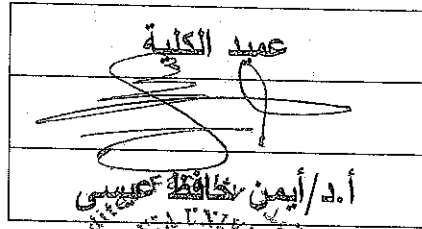 عميد الكلية
أ.د/أيمن حافظ عيسى